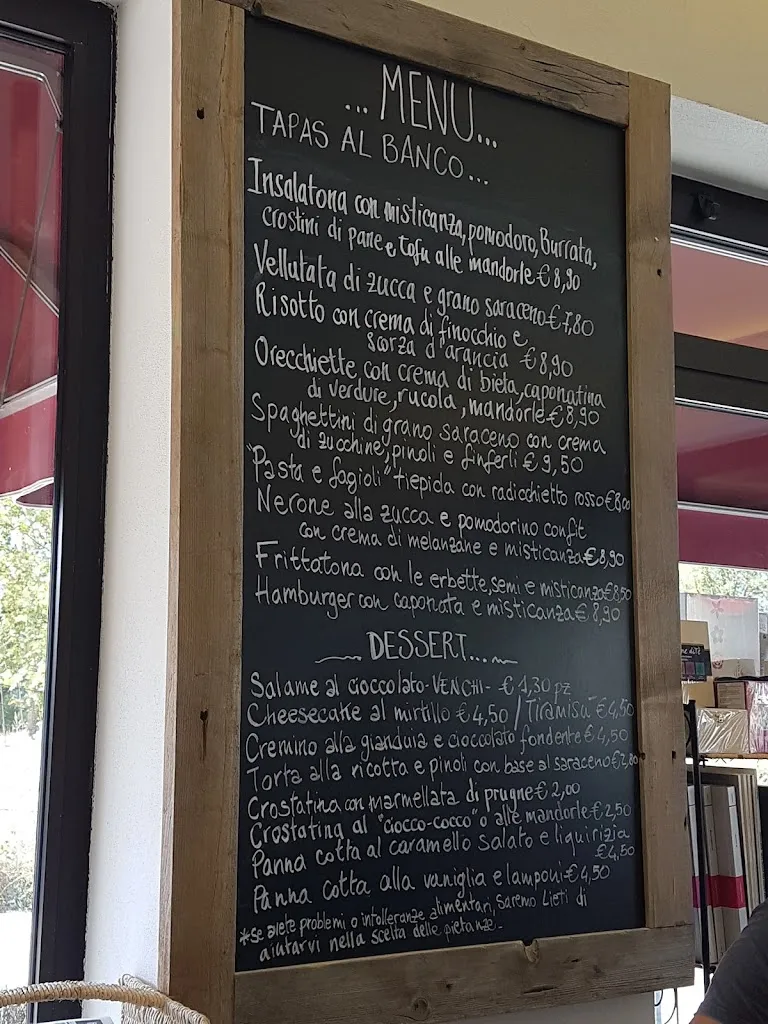 ... MENU...
TAPAS AL BANCO...
Insalatona con misticanza, pomodoro, Burrata,
crostini di pane e tofu alle mandorle € 8,90
Vellutata di zucca e grano saraceno € 7,80
Risotto con crema di finocchio e
scorza d'arancia € 8,90
Orecchiette con crema di bieta, caponatina
di verdure, rucola, mandorle € 8,90
Spaghettini di grano saraceno con crema
di zucchine, pinoli e finferli € 9,50
"Pasta e fagioli" tiepida con radicchietto rosso € 8,00
Nerone alla zucca e pomodorino confit
con crema di melanzane e misticanza € 8,90
Frittatona con le erbette, semi e misticanza € 8,50
Hamburger con caponata e misticanza € 8,90
DESSERT...
Salame al cioccolato - VENCHI - € 1,30 pz
Cheesecake al mirtillo € 4,50 / Tiramisù € 4,50
Cremino alla gianduia e cioccolato fondente € 4,50
Torta alla ricotta e pinoli con base al saraceno € 2,80
Crostatina con marmellata di prugne € 2,00
Crostatina al "ciocco-cocco" o alle mandorle € 2,50
Panna cotta al caramello salato e liquirizia
€ 4,50
Panna cotta alla vaniglia e lamponi € 4,50
*Se avete problemi o intolleranze alimentari, saremo lieti di
aiutarvi nella scelta delle pietanze.